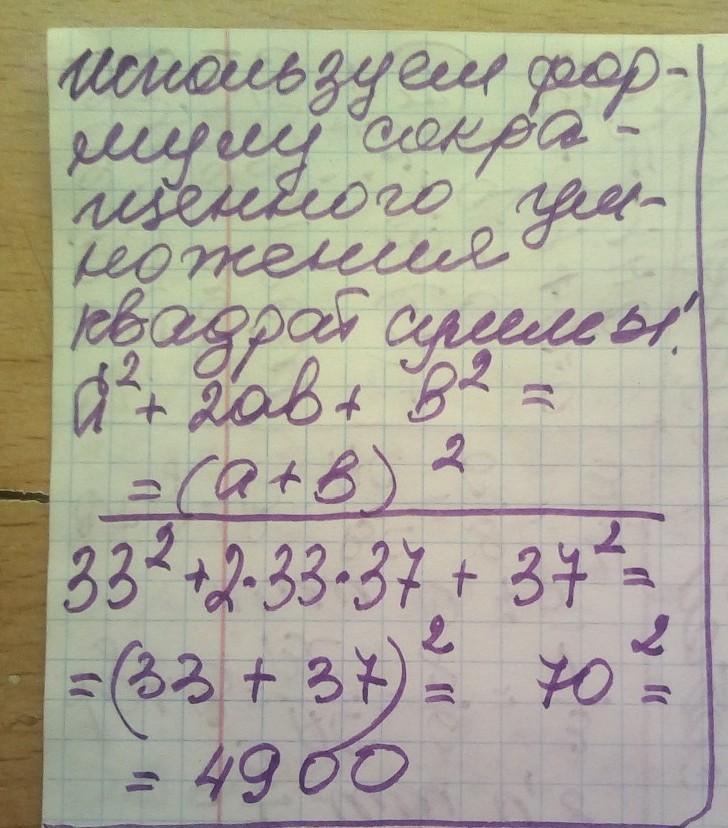 используем фор-
мулу сокра-
щенного ум-
ножения
квадрат суммы:
a² + 2ab + b² =
= (a + b)²
33² + 2·33·37 + 37² =
= (33 + 37)² = 70² =
= 4900